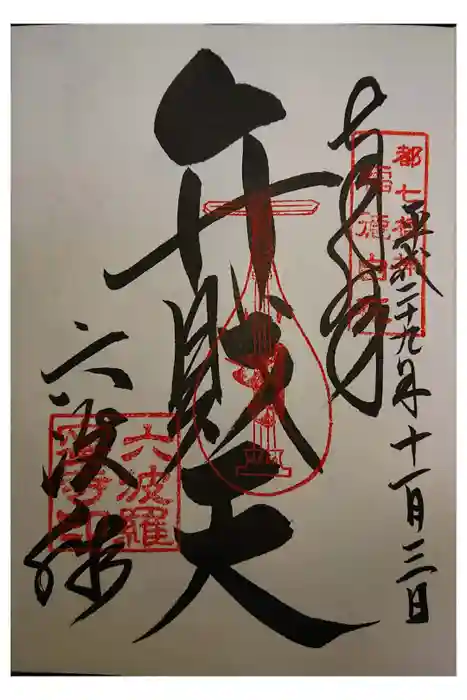 奉拝
平成二十九年十一月三日
都七福神
弁財天
六波羅
六波羅
蜜寺印